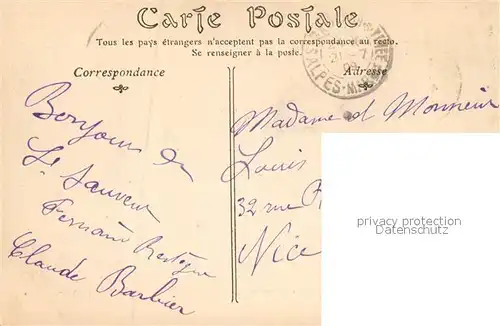 Carte Postale
Tous les pays étrangers n'acceptent pas la correspondance au recto.
Se renseigner à la poste.
Correspondance
Adresse
ALPES-M
Bonjour de
St Sauveur
Fernand
Claude Barbier
Madame et Monsieur
Louis
32 rue
Nice
privacy protection
Datenschutz